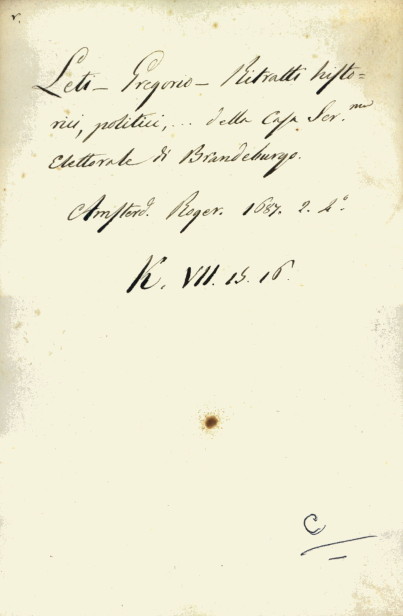 r.
Leti – Gregorio – Ritratti histo=
rici, politici, ... della Casa Ser.ma
Elettorale di Brandeburgo.
Amsterd. Roger. 1687. 2. 4°.
K. VII. 15. 16.
C